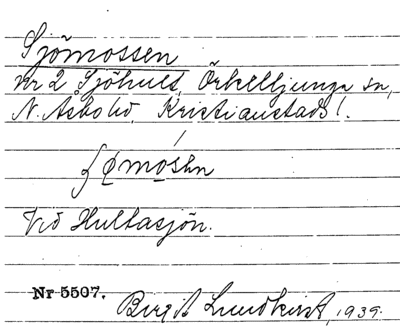 Sjömossen
kr 2 Sjöhult, Örkelljunga sn,
N. Åsbo hd, Kristianstads l.
Vid Hultasjön.
Nr 5507.
Birgit Lundkvist, 1939.